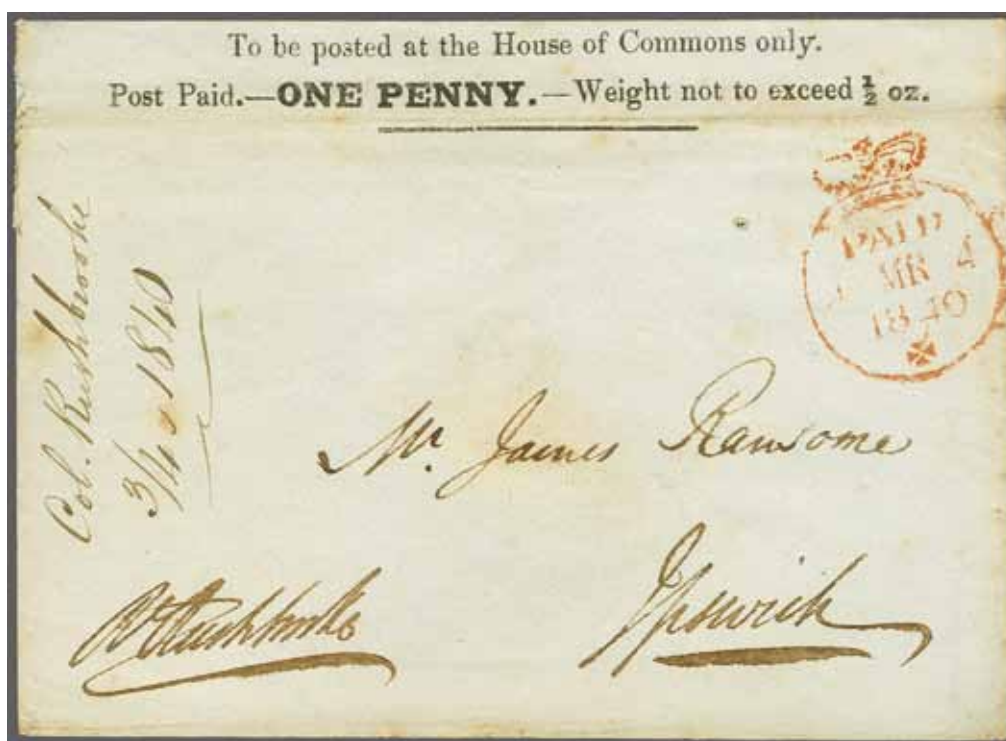 To be posted at the House of Commons only.
Post Paid.—ONE PENNY.—Weight not to exceed ½ oz.
PAID
MR 4
1840
Col. Rushbrooke
3/4 1840
Mr. James Ransome
Ipswich
Rushbrooke